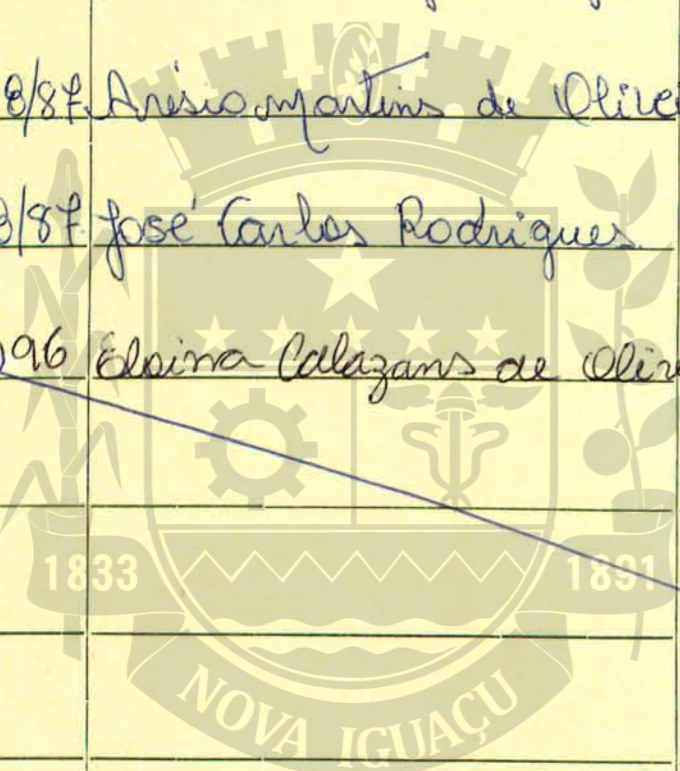 8/87 Arésio Martins de Olivei
8/87 José Carlos Rodrigues
96 Eloina Calazans de Olive
1833 1891
NOVA IGUAÇU